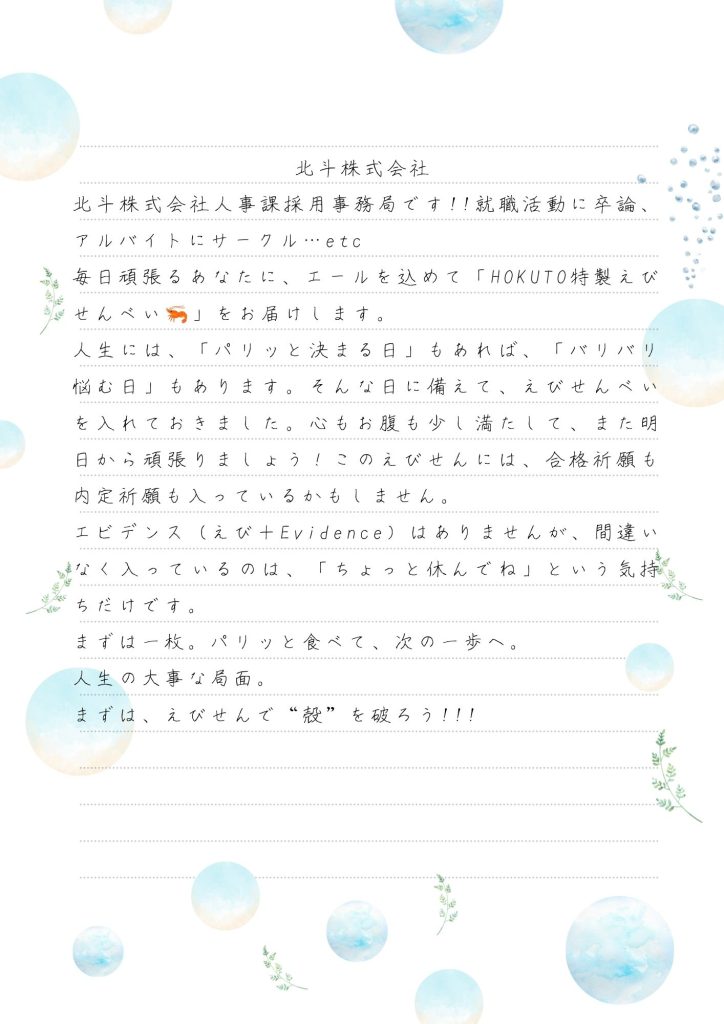 北斗株式会社
北斗株式会社人事課採用事務局です!!就職活動に卒論、
アルバイトにサークル…etc
毎日頑張るあなたに、エールを込めて「HOKUTO特製えび
せんべい🦐」をお届けします。
人生には、「パリッと決まる日」もあれば、「バリバリ
悩む日」もあります。そんな日に備えて、えびせんべい
を入れておきました。心もお腹も少し満たして、また明
日から頑張りましょう！このえびせんには、合格祈願も
内定祈願も入っているかもしません。
エビデンス（えび＋Evidence）はありませんが、間違い
なく入っているのは、「ちょっと休んでね」という気持
ちだけです。
まずは一枚。パリッと食べて、次の一歩へ。
人生の大事な局面。
まずは、えびせんで“殻”を破ろう!!!